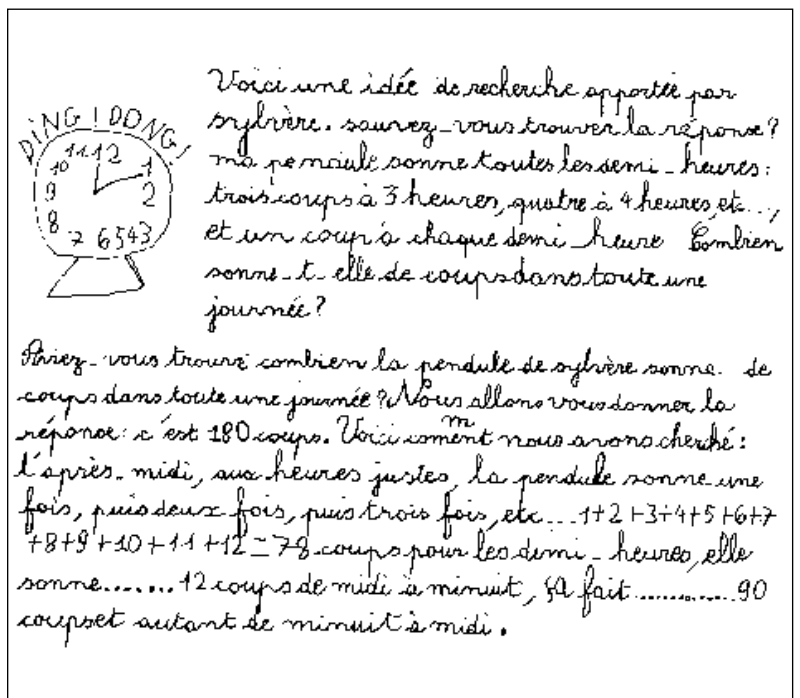 DING ! DONG !
11 12 1
10 2
9
8
7 6 5 4 3
Voici une idée de recherche apportée par
sylvère. saurez-vous trouver la réponse ?
ma pendule sonne toutes les demi-heures :
trois coups à 3 heures, quatre à 4 heures, etc...,
et un coup à chaque demi-heure Combien
sonne-t-elle de coups dans toute une
journée ?
Aviez-vous trouvé combien la pendule de sylvère sonne de
coups dans toute une journée ? Nous allons vous donner la
réponse : c'est 180 coups. Voici comment nous avons cherché :
l'après-midi, aux heures justes, la pendule sonne une
fois, puis deux fois, puis trois fois, etc... 1+2+3+4+5+6+7
+8+9+10+11+12=78 coups pour les demi-heures, elle
sonne....... 12 coups de midi à minuit, ça fait ............ 90
coups et autant de minuit à midi.